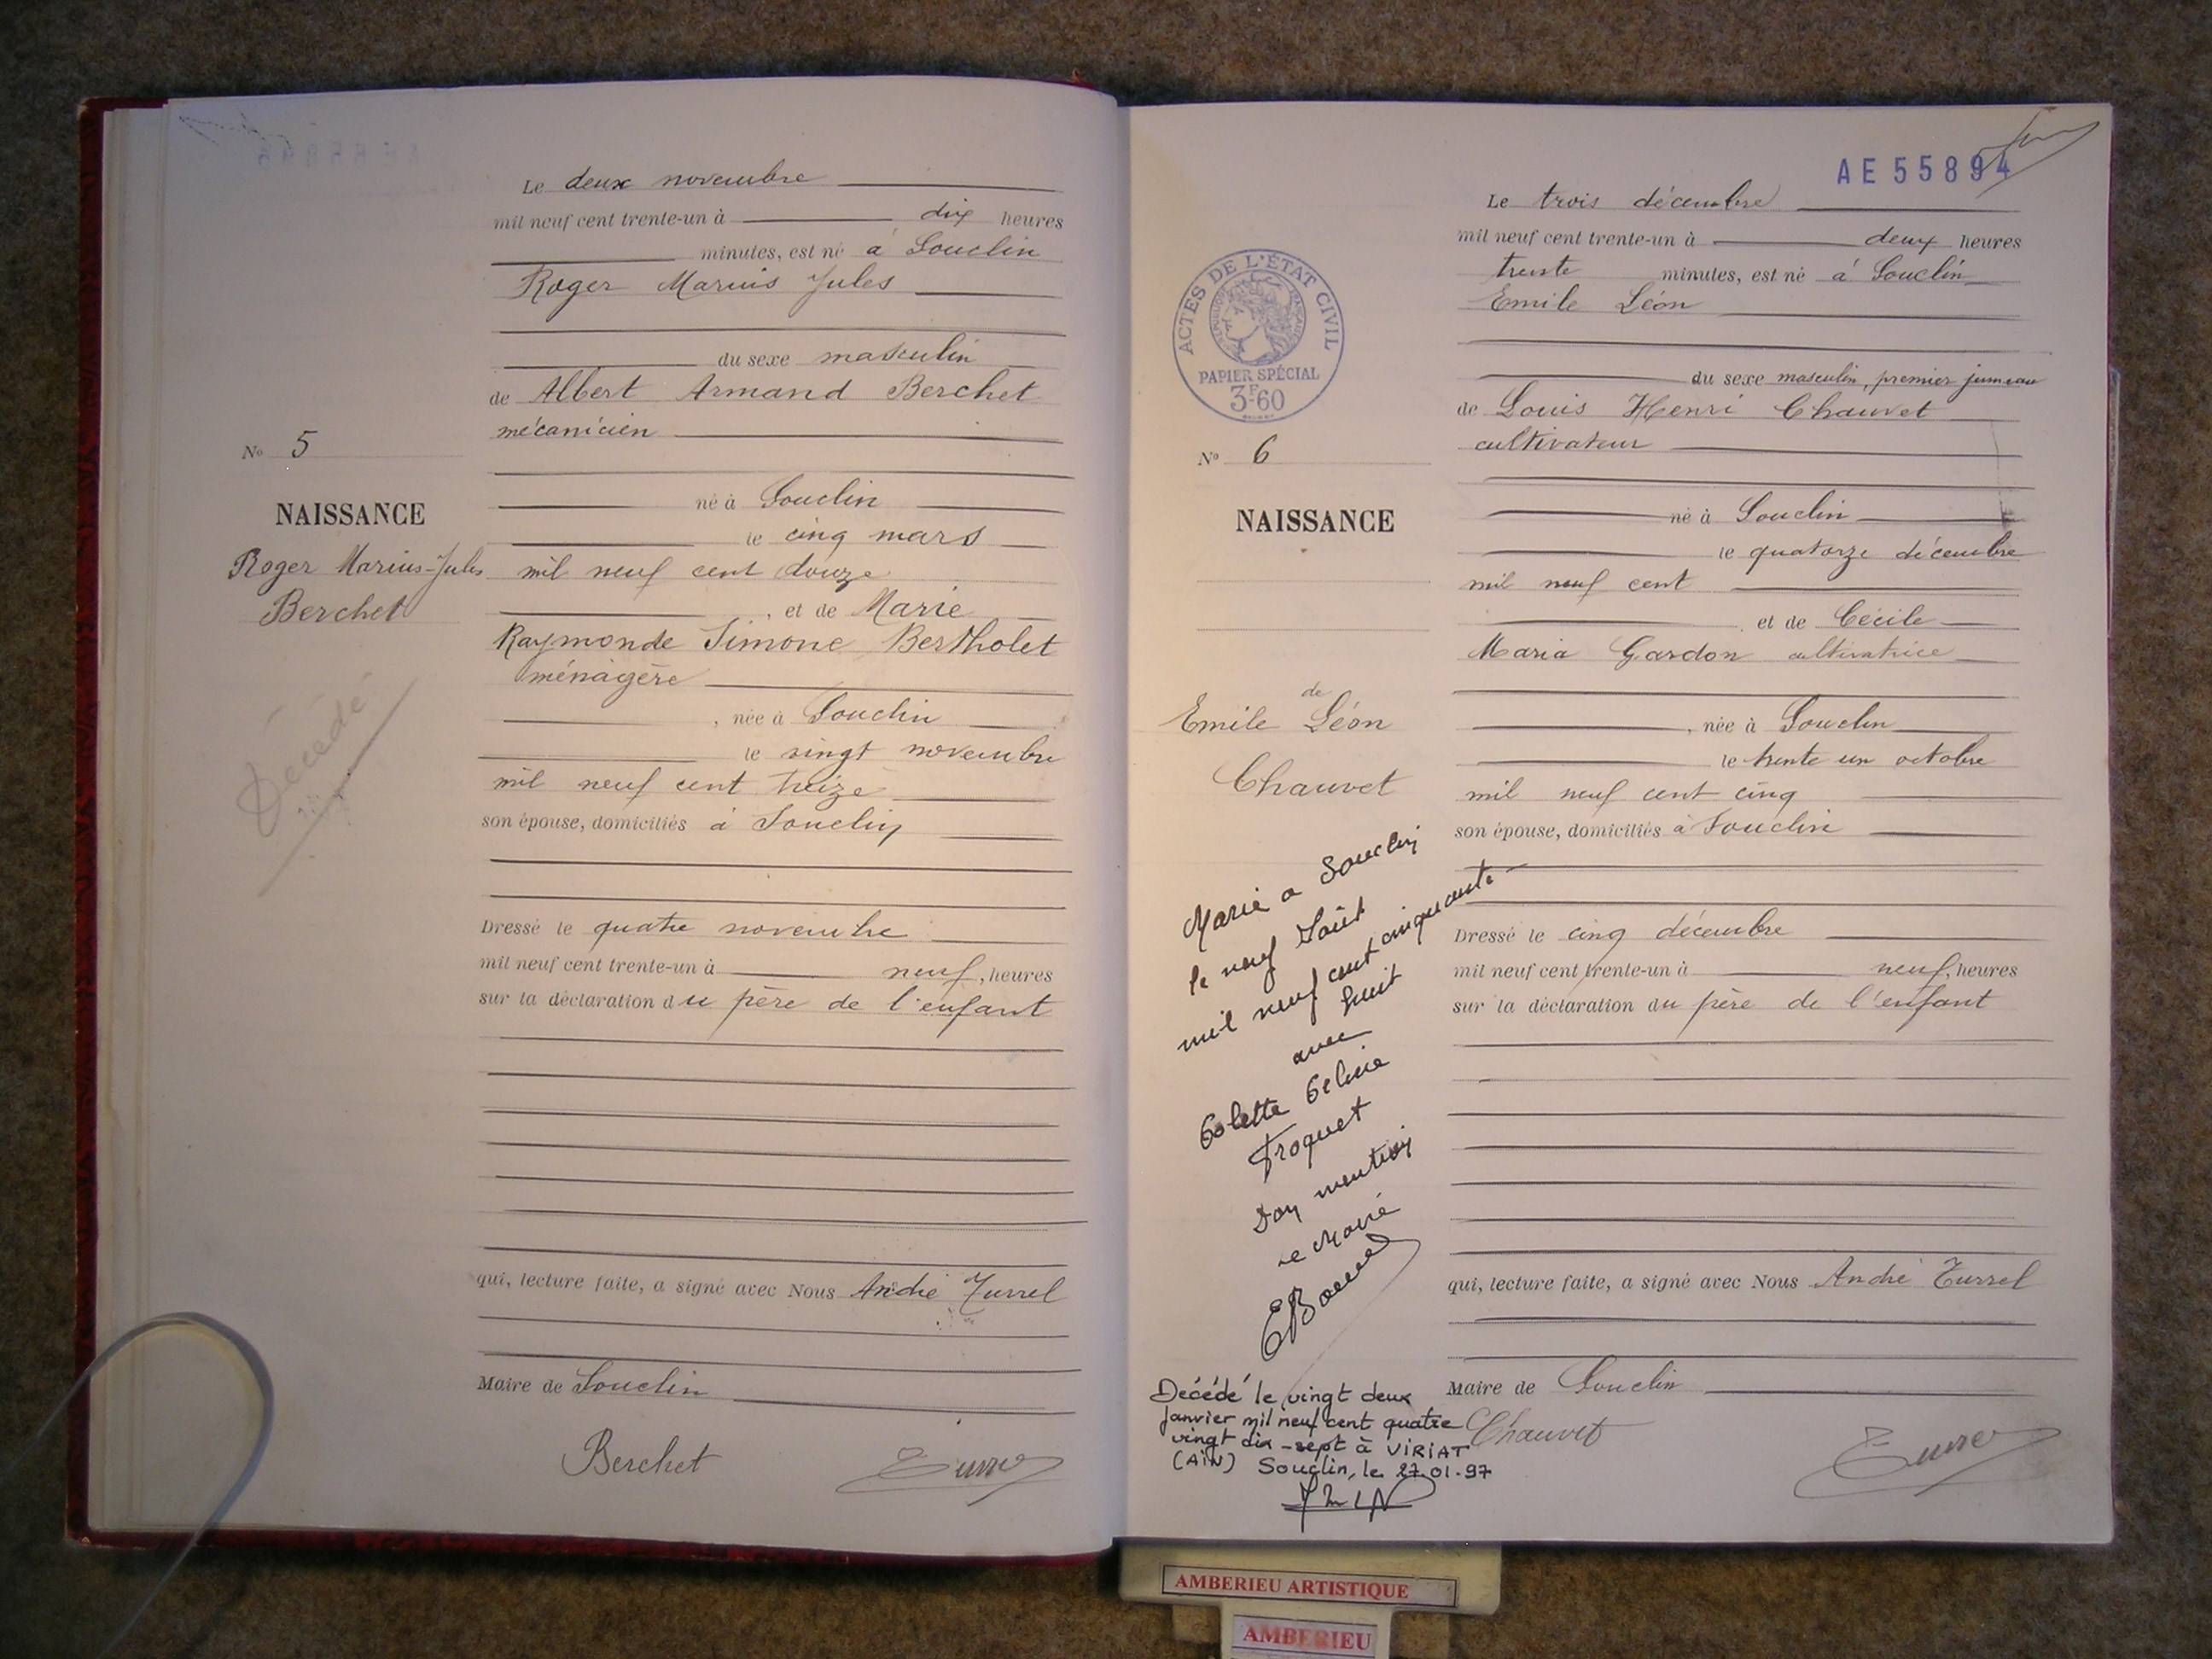 Le deux novembre
mil neuf cent trente-un à dix heures
minutes, est né à Souclin
Roger Marius Jules
du sexe masculin
de Albert Armand Berchet
mécanicien
né à Souclin
le cinq mars
mil neuf cent douze
, et de Marie
Raymonde Simone Bertholet
ménagère
, née à Souclin
le vingt novembre
mil neuf cent treize
son épouse, domiciliés à Souclin
Dressé le quatre novembre
mil neuf cent trente-un à neuf, heures
sur la déclaration du père de l'enfant
qui, lecture faite, a signé avec Nous André Turrel
Maire de Souclin
Berchet
No 5
NAISSANCE
Roger Marius-Jules
Berchet
Décédé
AE 55894
Le trois décembre
mil neuf cent trente-un à deux heures
trente minutes, est né à Souclin
Emile Léon
du sexe masculin, premier jumeau
de Louis Henri Chauvet
cultivateur
né à Souclin
le quatorze décembre
mil neuf cent
et de Cécile
Maria Gardon cultivatrice
, née à Souclin
le trente un octobre
mil neuf cent cinq
son épouse, domiciliés à Souclin
Dressé le cinq décembre
mil neuf cent trente-un à neuf, heures
sur la déclaration du père de l'enfant
qui, lecture faite, a signé avec Nous André Turrel
Maire de Souclin
Chauvet
ACTES DE L'ÉTAT CIVIL
PAPIER SPÉCIAL
3F60
No 6
NAISSANCE
de
Emile Léon
Chauvet
Marié a Souclin
le neuf Août
mil neuf cent cinquante
huit
avec
Colette Céline
Troquet
mention
Le Maire
Décédé le vingt deux
janvier mil neuf cent quatre
vingt dix-sept à VIRIAT
(AIN) Souclin, le 27.01.97
AMBERIEU ARTISTIQUE
AMBERIEU